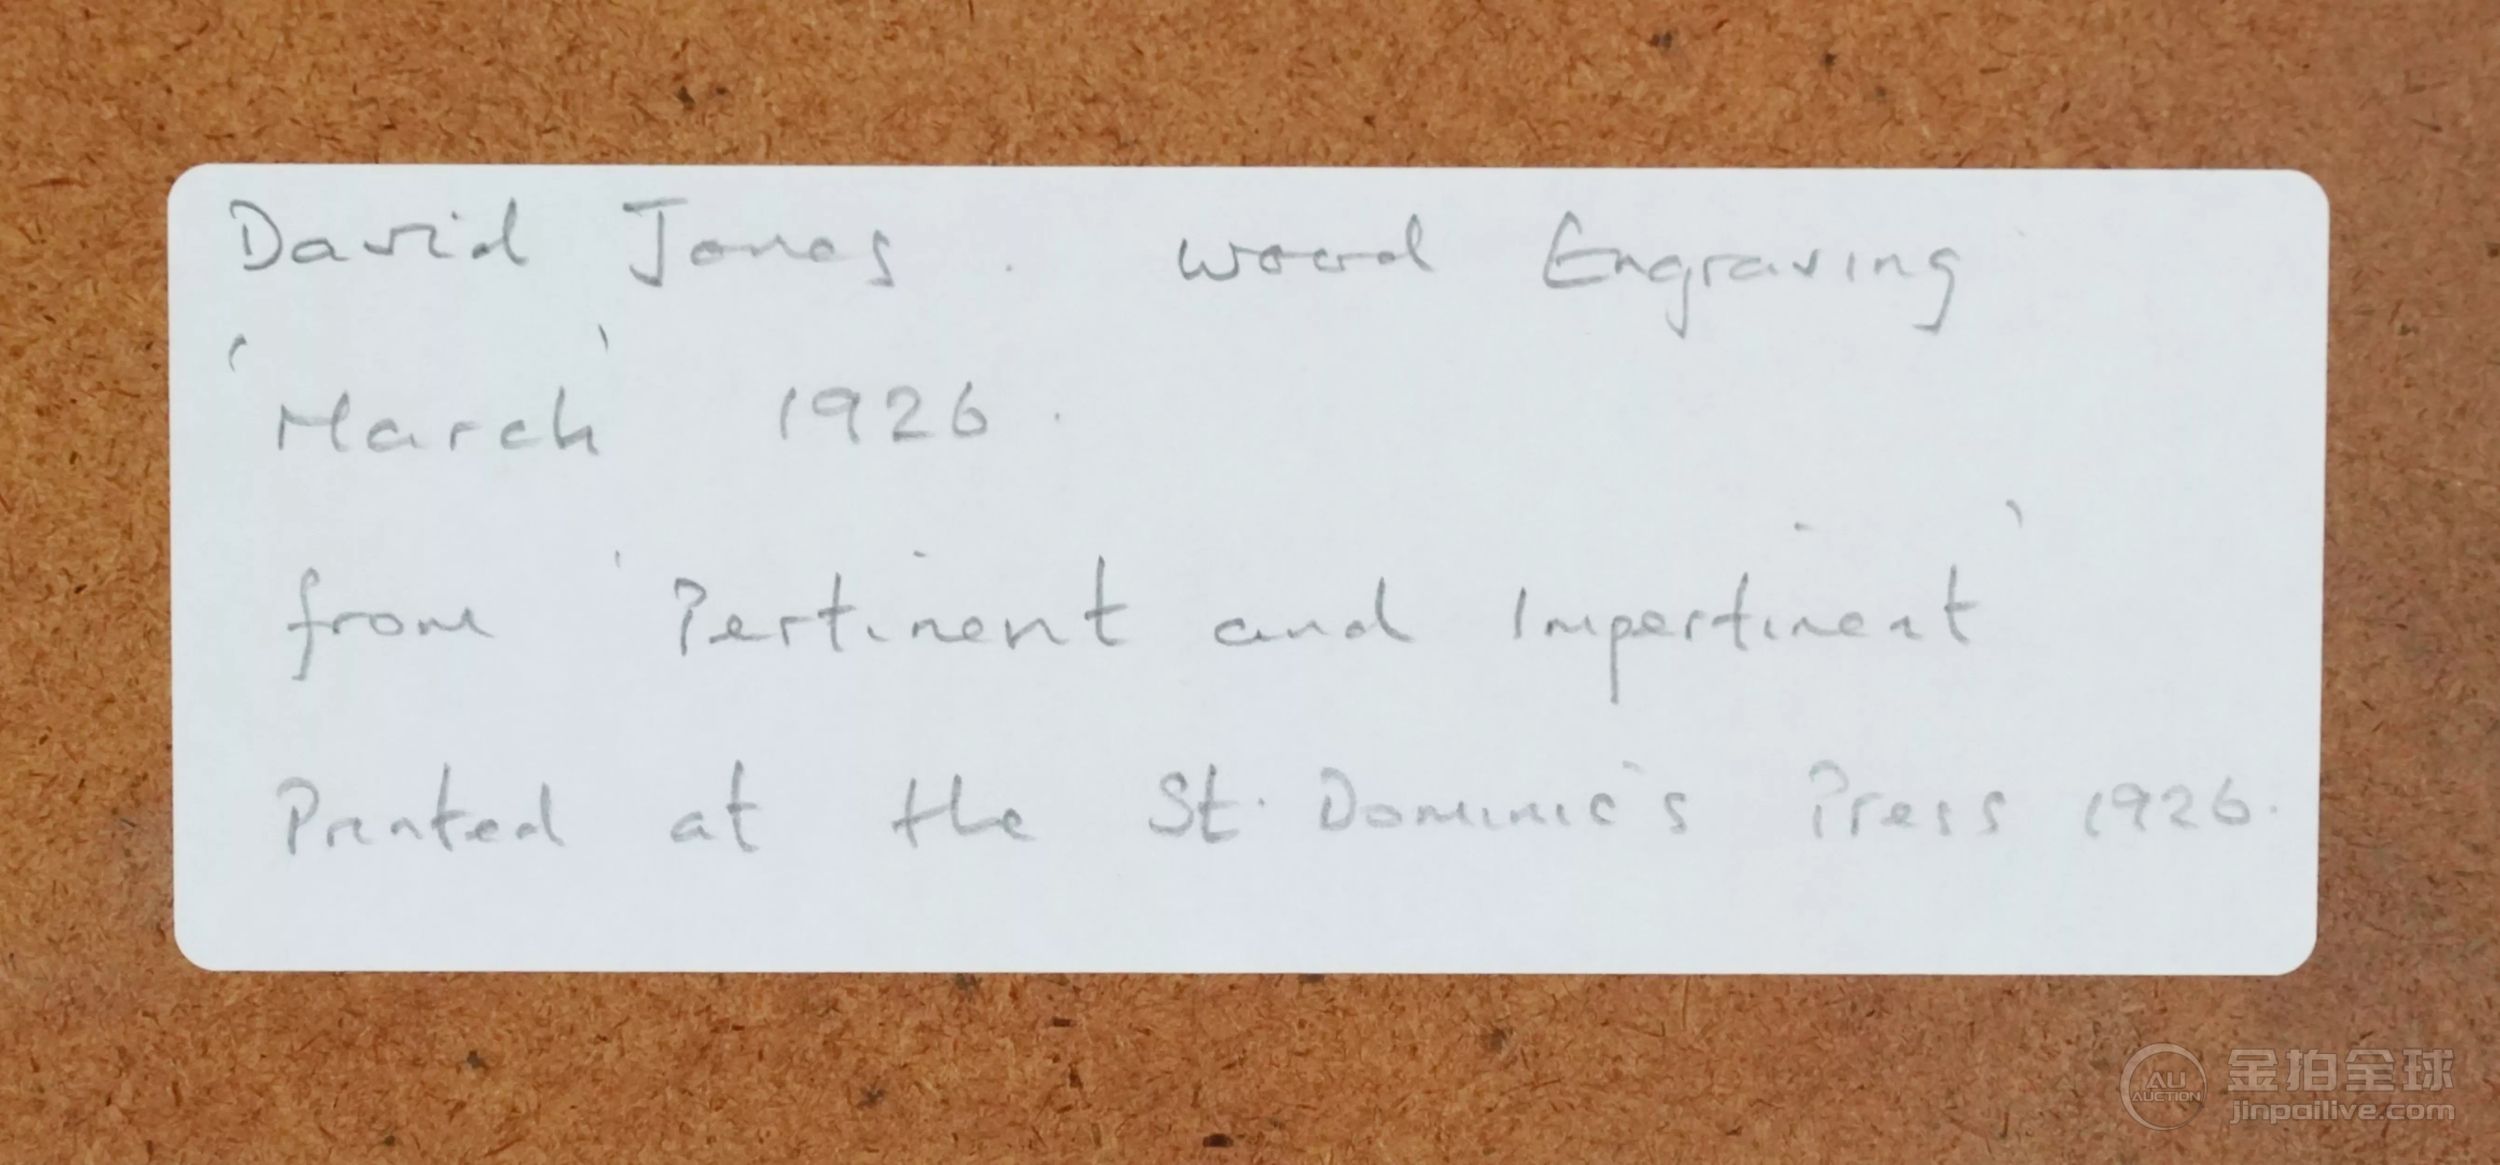 David Jones . Wood Engraving
'March' 1926.
from 'Pertinent and Impertinent'
Printed at the St. Dominic's Press 1926.
AU
AUCTION
金拍全球
jinpailive.com